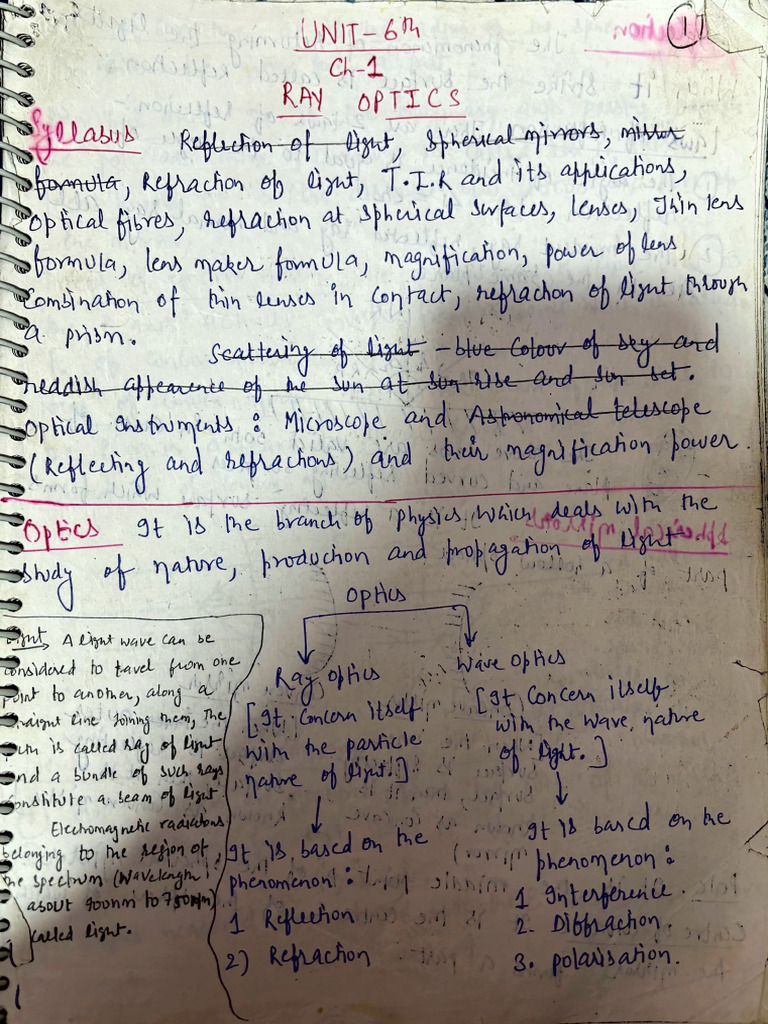 1
UNIT-6th
Ch-1
RAY OPTICS
Syllabus Reflection of light, Spherical mirrors, mirror
formula, Refraction of light, T.I.R and its applications,
Optical fibres, refraction at spherical surfaces, lenses, Thin lens
formula, lens maker formula, magnification, power of lens,
Combination of thin lenses in contact, refraction of light through
a prism.
Scattering of light - blue colour of sky and
reddish appearence of the sun at sun rise and sun set.
Optical Instruments : Microscope and Astronomical telescope
(Reflecting and refractions) and their magnification power.
Optics It is the branch of physics which deals with the
study of nature, production and propagation of light
Optics
Ray optics
[It Concern itself
with the particle
nature of light.]
It is based on the
phenomenon :
1 Reflection
2) Refraction
Wave optics
[It Concern itself
with the wave nature
of light.]
It is based on the
phenomenon :
1 Interference.
2. Diffraction.
3. polarisation.
Light, A light wave can be
considered to travel from one
point to another, along a
straight line Joining them, The
path is called ray of light
and a bundle of such rays
constitute a beam of light
Electromagnetic radiations
belonging to the region of
the spectrum (wavelength
about 400nm to 750nm)
called light.